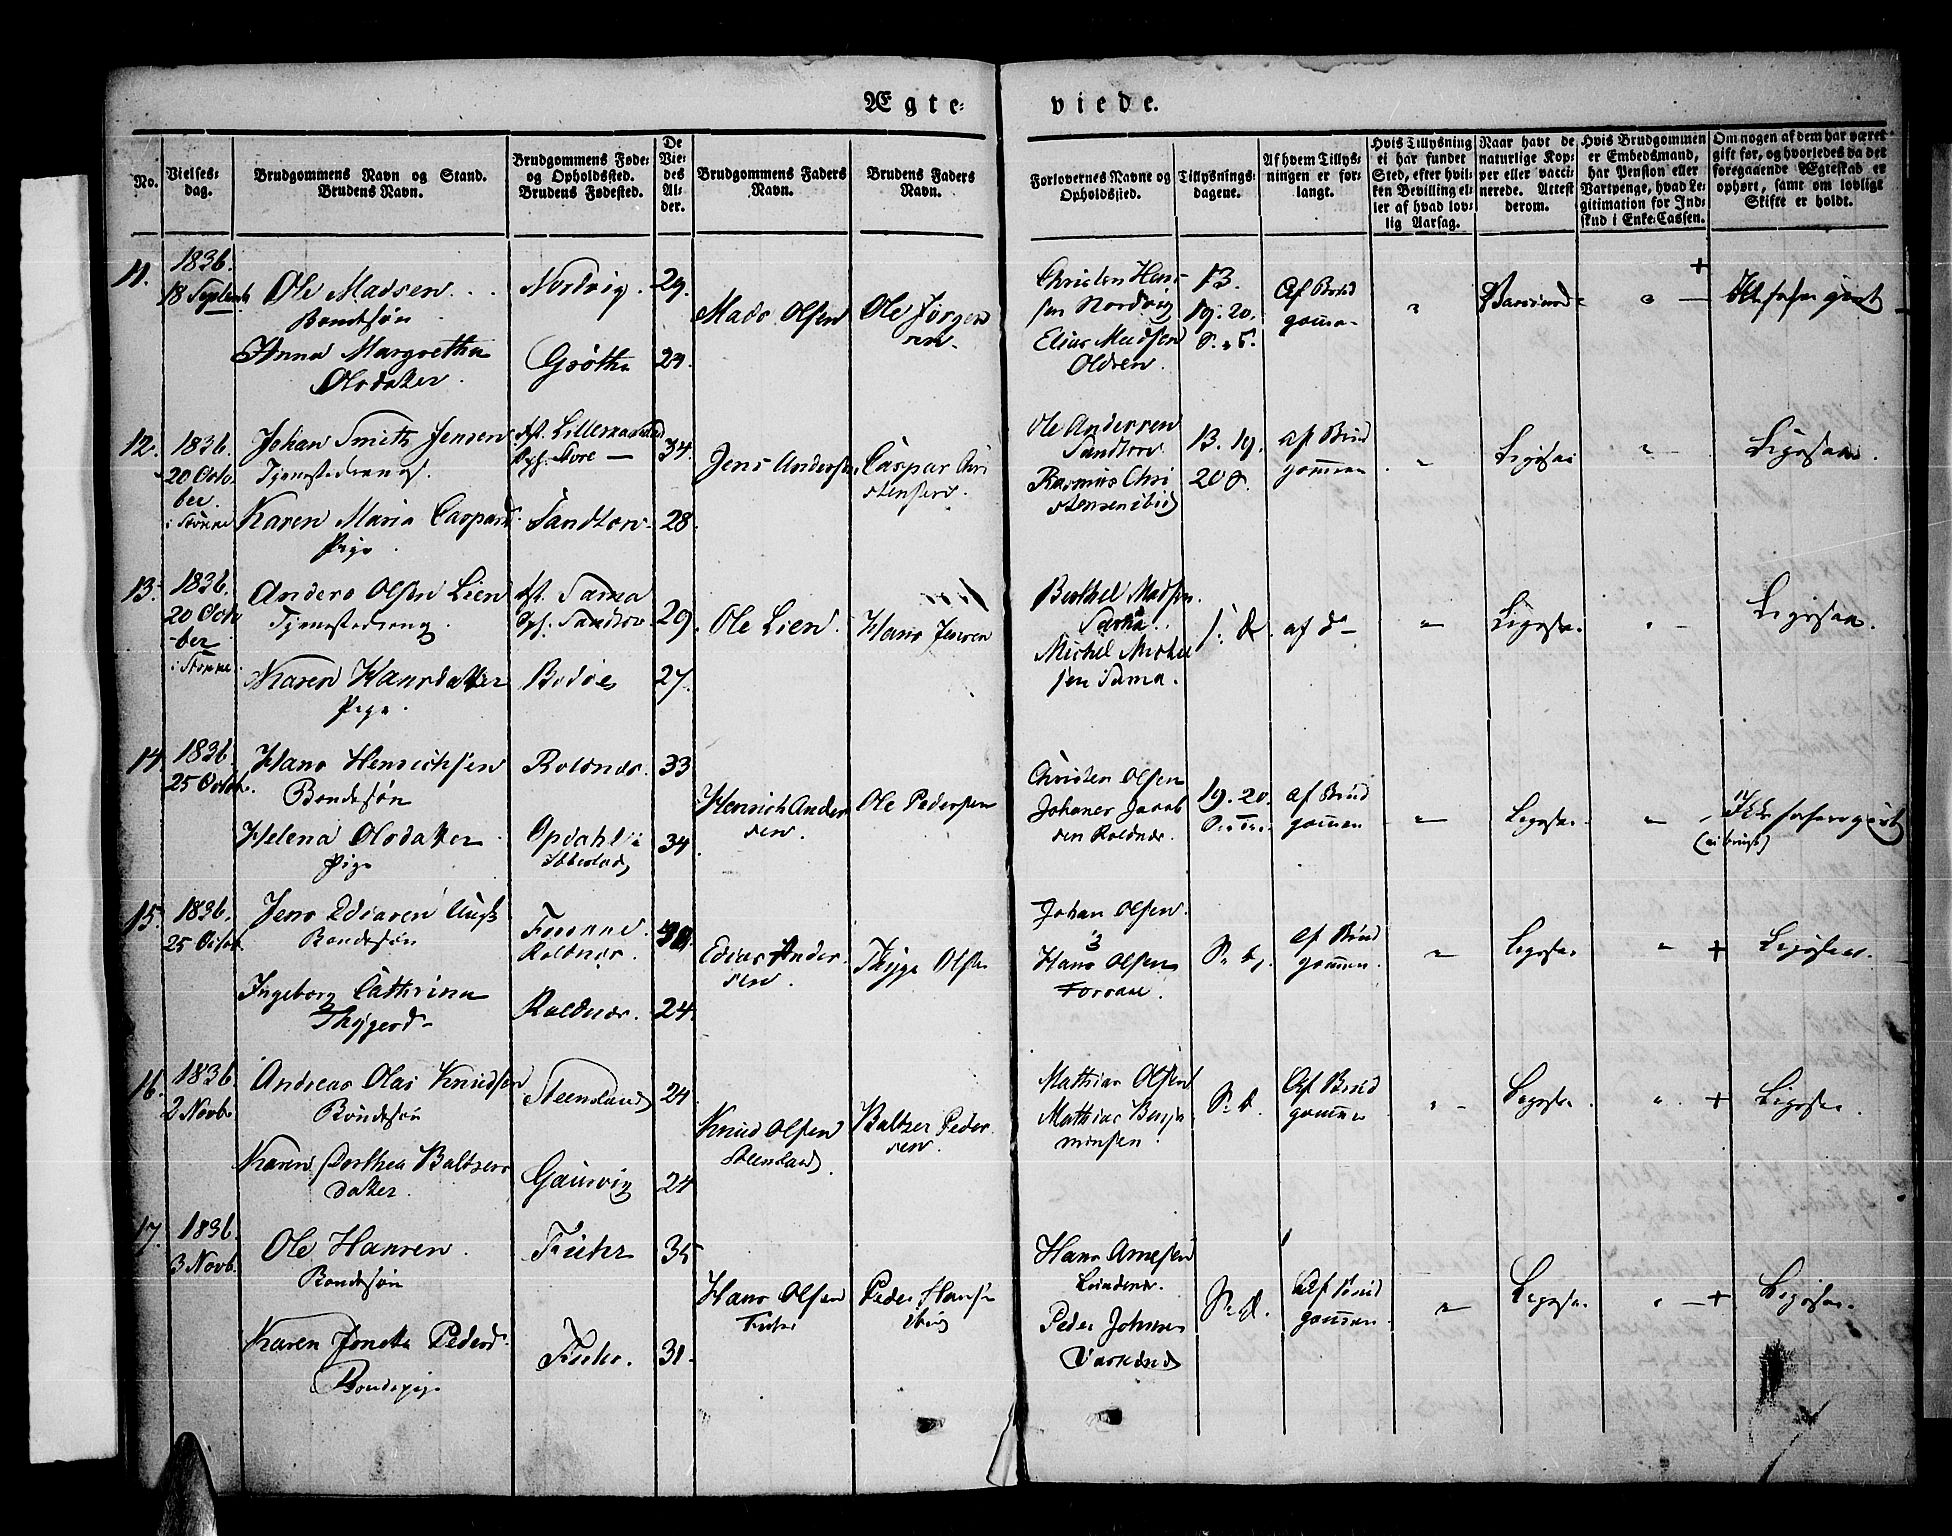 Ægte-
viede.
No.
Vielses-
dag.
Brudgommens Navn og Stand.
Brudens Navn.
Brudgommens Føde-
og Opholdssted.
Brudens Fødested.
De
Vie-
des
Al-
der.
Brudgommens Faders
Navn.
Brudens Faders
Navn.
Forlovernes Navne og
Opholdssted.
Tillysnings-
dagene.
Af hvem Tillys-
ningen er for-
langt.
Hvis Tillysning
ei har fundet
Sted, efter hvil-
ken Bevilling el-
ler af hvad lov-
lig Aarsag.
Naar havt de
naturlige Kop-
per eller vacci-
nerede. Attest
derom.
Hvis Brudgommen
er Embedsmand,
har Pension eller
Vartpenge, hvad Le-
gitimation for Ind-
skud i Enke-Cassen.
Om nogen af dem har været
gift før, og hvorledes da det
foregaaende Ægteskab er
ophørt, samt om lovligt
Skifte er holdt.
11.
1836.
18 Septemb
Ole Madsen
Bondesøn
Anna Margretha
Olsdatter.
Nordvig
29.
Mads Olsen
Ole Jørgen
sen.
Christen Han-
sen Nordvig
Elias Madsen
Oldren.
13.
19. 20.
Af Brud
gom-
12.
1836.
20 Octo
ber
Johan Smith Jensen
Tjenestedreng
Karen Maria Caspars
Pige.
Sandtorv
34
28
Jens Andersen
Caspar Chri
stensen.
Ole Andersen
Sandtorv
Rasmus Chri
stensen ibid
13. 19.
20
af Brud
gommen
Ligesaa
Ligesaa
13.
1836.
20 Octo
ber
Anders Olsen Lien
Tjenestedreng.
Karen Hansdatter
Pige.
Sama
Sandtorv
Bodøe
29
27.
Ole Lien.
Hans Jensen
Berthel Madsen
Sama
Michel Michel
sen Sama.
af d-
Ligesaa.
Ligesaa.
14
1836
25 Octob.
Hans Henrichsen
Bondesøn
Helena Olsdatter
Pige
Roldnæs.
Opdahl i
Ibbestad
33
34
Henrich Ander
sen.
Ole Pedersen
Christen Olsen
Johanes Jacob
sen Roldnæs.
19. 20.
af Brud
gommen
Ligesaa.
15.
1836.
25 Octob.
Jens
Bondesøn
Ingeborg Cathrina
Thygesd-
Roldnæs.
Roldnæs.
24.
Ander-
sen.
Thyge Olsen
Johan Olsen.
Hans Olsen
af Brud
gommen.
Ligesaa
Ligesaa.
16.
1836.
2 Novb.
Andreas Olai Knudsen
Bondesøn
Karen Dorthea Baltzers
datter.
Steensland
Gausvig
24
24
Knud Olsen
Steensland.
Baltzer Peder
sen.
Mathias Olsen
Mathias Benja
minsen.
Af Brud
gommen
Ligesaa
Ligesaa.
17.
1836.
3 Novb.
Ole Hansen.
Bondesøn
Karen Jonetta Pedersd.
Bondepige
35
31.
Hans Olsen
Peder Hansen
Hans Arnesen
Peder Johnsen
Af Brud
gommen.
Ligesaa.
Ligesaa.